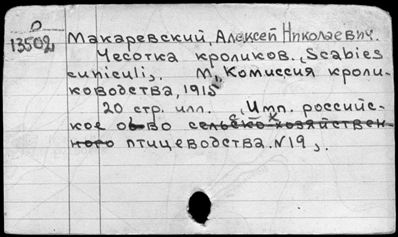 О
13502
Макаревский, Алексей Николаевич.
Чесотка кроликов. (Scabies
cuniculi). М., Комиссия кроли-
ководства, 1915
20 стр. илл. (Имп. российс-
кое о-во сельско-хозяйствен-
ного птицеводства. N19).